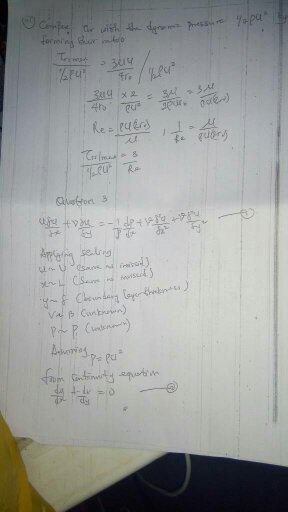 Compare τr with the dynamic pressure ½ρU² by
forming their ratio
τrθmax / ½ρU² = 3μU / 4r₀ / ½ρU²
3μU / 4r₀ × 2 / ρU² = 3μ / 2ρU r₀ = 3μ / ρU(2r₀)
Re = ρU(2r₀) / μ , 1 / Re = μ / ρU(2r₀)
τrθmax / ½ρU² = 3 / Re
Question 3
u∂u/∂x + v∂u/∂y = -1/ρ ∂P/∂x + ν∂²u/∂x² + ν∂²u/∂y² — ①
Applying scaling
u ~ U (same as
x ~ L (same as
y ~ δ (boundary layer thickness)
V ~ B (unknown)
P ~ P (unknown)
Assuming P = ρU²
from continuity equation
du/dx + dv/dy = 0 — ②